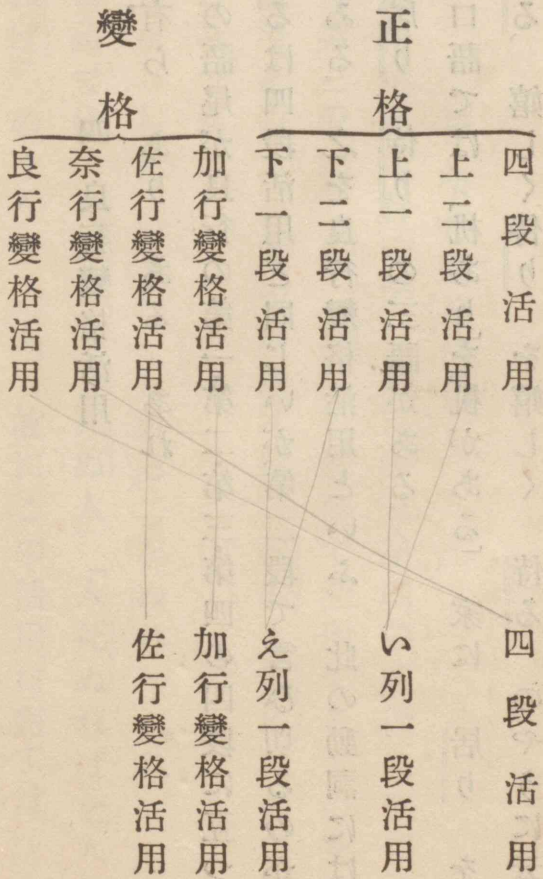 正格
四段活用
上二段活用
上一段活用
下二段活用
下一段活用
變格
加行變格活用
佐行變格活用
奈行變格活用
良行變格活用
四段活用
い列一段活用
え列一段活用
加行變格活用
佐行變格活用